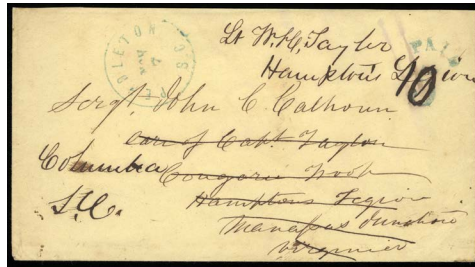 Lt W. H. Taylor
Hamptons Legion
PAID
10
Sergt. John C. Calhoun
care of Capt Taylor
Columbia
Congaree Troop
S.C.
Hamptons Legion
Manassas Junction
Virginia